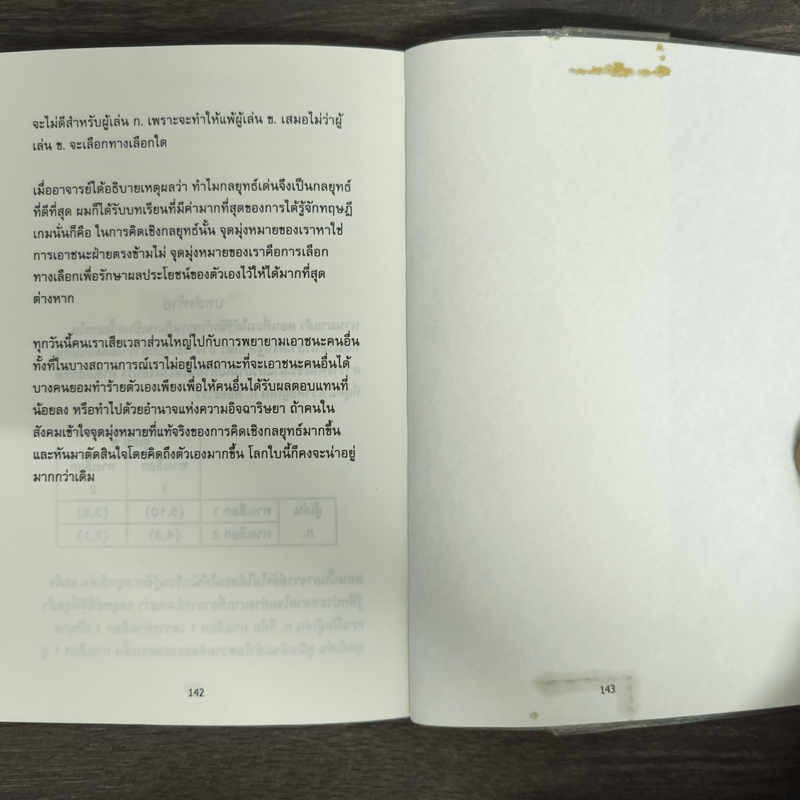 จะไม่ดีสำหรับผู้เล่น ก. เพราะจะทำให้แพ้ผู้เล่น ข. เสมอไม่ว่าผู้
เล่น ข. จะเลือกทางเลือกใด
เมื่ออาจารย์ได้อธิบายเหตุผลว่า ทำไมกลยุทธ์เด่นจึงเป็นกลยุทธ์
ที่ดีที่สุด ผมก็ได้รับบทเรียนที่มีค่ามากที่สุดของการได้รู้จักทฤษฎี
เกมนั่นก็คือ ในการคิดเชิงกลยุทธ์นั้น จุดมุ่งหมายของเราหาใช่
การเอาชนะฝ่ายตรงข้ามไม่ จุดมุ่งหมายของเราคือการเลือก
ทางเลือกเพื่อรักษาผลประโยชน์ของตัวเองไว้ให้ได้มากที่สุด
ต่างหาก
ทุกวันนี้คนเราเสียเวลาส่วนใหญ่ไปกับการพยายามเอาชนะคนอื่น
ทั้งที่ในบางสถานการณ์เราไม่อยู่ในสถานะที่จะเอาชนะคนอื่นได้
บางคนยอมทำร้ายตัวเองเพียงเพื่อให้คนอื่นได้รับผลตอบแทนที่
น้อยลง หรือทำไปด้วยอำนาจแห่งความอิจฉาริษยา ถ้าคนใน
สังคมเข้าใจจุดมุ่งหมายที่แท้จริงของการคิดเชิงกลยุทธ์มากขึ้น
และหันมาตัดสินใจโดยคิดถึงตัวเองมากขึ้น โลกใบนี้ก็คงจะน่าอยู่
มากกว่าเดิม
142
143